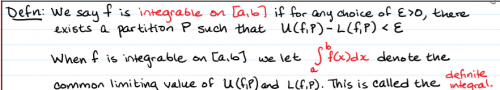 Defn: We say f is integrable on [a,b] if for any choice of ε>0, there
exists a partition P such that U(f,P) - L(f,P) < ε
When f is integrable on [a,b] we let ∫_a^b f(x)dx denote the
common limiting value of U(f,P) and L(f,P). This is called the definite integral.